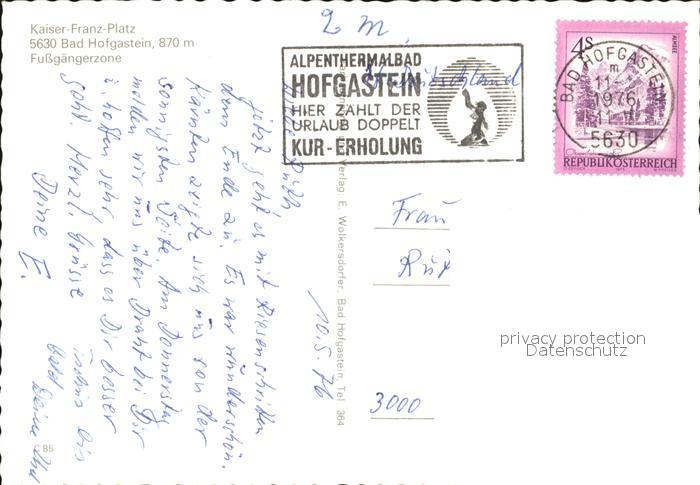 Kaiser-Franz-Platz
5630 Bad Hofgastein, 870 m
Fußgängerzone
2 M.
Deutschland
ALPENTHERMALBAD
HOFGASTEIN
HIER ZÄHLT DER
URLAUB DOPPELT
KUR-ERHOLUNG
4S
ALMSEE
REPUBLIK ÖSTERREICH
BAD HOFGASTEIN
1976
5630
10.5.76
jetzt geht es mit Riesenschritten
dem Ende zu. Es war wunderschön.
Kärnten zeigte sich uns von der
sonnigsten Seite. Am Donnerstag
melden wir uns über Draht bei Dir
u. hoffen sehr dass es Dir besser
geht. Herzl. Grüsse
bis
bald Deine
Deine E.
Verlag: E. Wolkersdorfer, Bad Hofgastein, Tel. 364
Frau
3000
85
privacy protection
Datenschutz